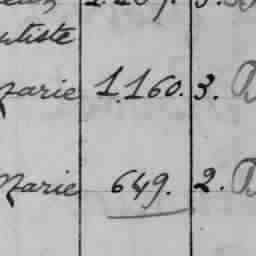 utiste
Marie 1.160. 3.
Marie 649. 2.